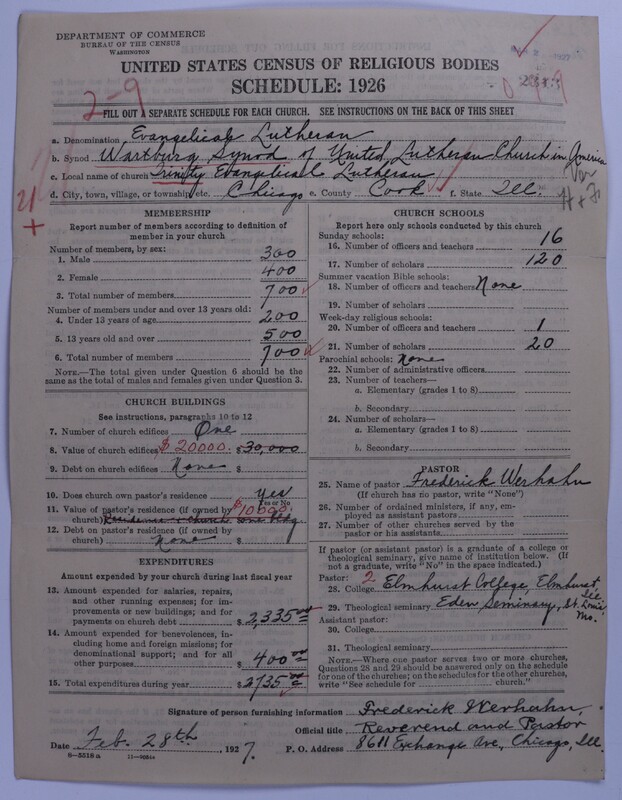 DEPARTMENT OF COMMERCE
BUREAU OF THE CENSUS
WASHINGTON
UNITED STATES CENSUS OF RELIGIOUS BODIES
SCHEDULE: 1926
2-9
FILL OUT A SEPARATE SCHEDULE FOR EACH CHURCH. SEE INSTRUCTIONS ON THE BACK OF THIS SHEET
a. Denomination Evangelical Lutheran
b. Synod Wartburg Synod of United Lutheran Church in America
c. Local name of church Trinity Evangelical Lutheran
d. City, town, village, or township etc. Chicago e. County Cook f. State Ill.
MEMBERSHIP
Report number of members according to definition of member in your church
Number of members, by sex:
1. Male 300
2. Female 400
3. Total number of members 700
Number of members under and over 13 years old:
4. Under 13 years of age 200
5. 13 years old and over 500
6. Total number of members 700
NOTE.—The total given under Question 6 should be
same as the total of males and females given under Question 3.
CHURCH BUILDINGS
See instructions, paragraphs 10 to 12
7. Number of church edifices One
8. Value of church edifices $20000. $30,000
9. Debt on church edifices None $
10. Does church own pastor's residence Yes
Yes or No
11. Value of pastor's residence (if owned by $10000.
church) Residence & church one bldg.
12. Debt on pastor's residence (if owned by
church) None $
EXPENDITURES
Amount expended by your church during last fiscal year
13. Amount expended for salaries, repairs,
and other running expenses; for improvements
or new buildings; and for
payments on church debt $2,335.00
14. Amount expended for benevolences,
including home and foreign missions; for
denominational support; and for all
other purposes $400.00
15. Total expenditures during year $2735.00
CHURCH SCHOOLS
Report here only schools conducted by this church
Sunday schools:
16. Number of officers and teachers 16
17. Number of scholars 120
Summer vacation Bible schools:
18. Number of officers and teachers None
19. Number of scholars
Week-day religious schools:
20. Number of officers and teachers 1
21. Number of scholars 20
Parochial schools: None
22. Number of administrative officers
23. Number of teachers—
a. Elementary (grades 1 to 8)
b. Secondary
24. Number of scholars—
a. Elementary (grades 1 to 8)
b. Secondary
PASTOR
25. Name of pastor Frederick Werhahn
(If church has no pastor, write "None")
26. Number of ordained ministers, if any, employed
as assistant pastors
27. Number of other churches served by the
pastor or his assistants
If pastor (or assistant pastor) is a graduate of a college or
theological seminary, give name of institution below. (If
not a graduate, write "No" in the space indicated.)
Pastor: 2
28. College Elmhurst College, Elmhurst, Ill.
29. Theological seminary Eden Seminary, St. Louis Mo.
Assistant pastor:
30. College
31. Theological seminary
NOTE.—Where one pastor serves two or more churches,
Questions 28 and 29 should be answered only on the schedule
for one of the churches; on the schedules for the other churches,
write "See schedule for church."
Signature of person furnishing information Frederick Werhahn
Official title Reverend and Pastor
Date Feb. 28th, 1927. P. O. Address 8611 Exchange Ave., Chicago, Ill.
8-5518a 11-9034a